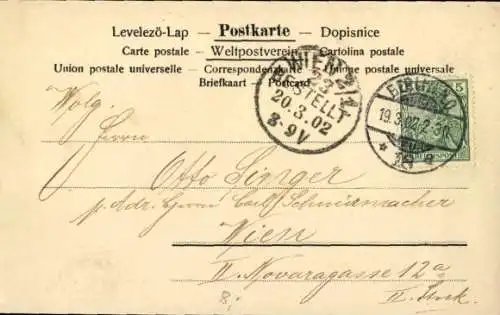 Levelezö-Lap — Postkarte — Dopisnice
Carte postale — Weltpostverein — Cartolina postale
Union postale universelle — Correspondenzkarte — Unione postale universale
Briefkaart — Postcard
WIEN 2/1
BESTELLT
20.3.02
8.9V
19.3.02.2-3N
5
Wolg.
Herrn
Otto Singer
p. Adr. Herrn Carl Schmirmacher
Wien
II Novaragasse 12a
II. Stock
8;